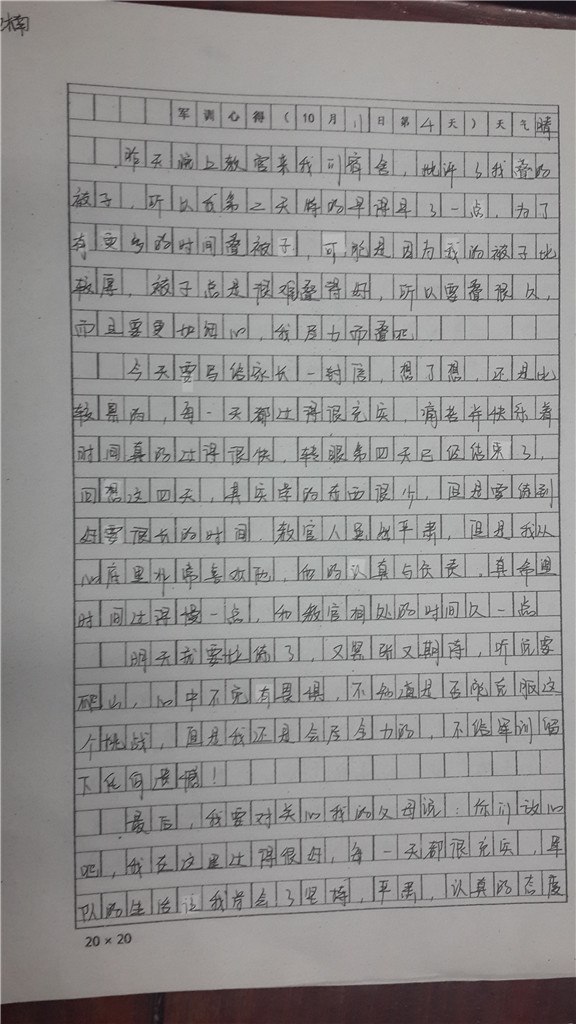 楠
军训心得（10月11日第4天）天气晴
昨天晚上教官来我们宿舍，批评了我叠的
被子，所以我第二天醒的早得早了一点，为了
有更多的时间叠被子，可能是因为我的被子比
较厚，被子总是很难叠得好，所以要叠很久，
而且要更加细心，我尽力而叠吧
今天要写给家长一封信，想了想，还是比
较累的，每一天都过得很充实，痛苦并快乐着
时间真的过得很快，转眼第四天已经结束了，
回想这四天，其实学的东西很少，但是要练到
好要很长的时间．教官人虽然严肃，但是我从
心底里非常喜欢他，他的认真与负责，真希望
时间过得慢一点，和教官相处的时间久一点
明天就要拉练了，又紧张又期待，听说要
爬山，心中不免有畏惧，不知道是否能克服这
个挑战，但是我还是会尽全力的，不给军训留
下任何遗憾！
最后，我要对关心我的父母说：你们放心
吧，我在这里过得很好，每一天都很充实，军
队的生活让我学会了坚持，严肃，认真的态度
20×20